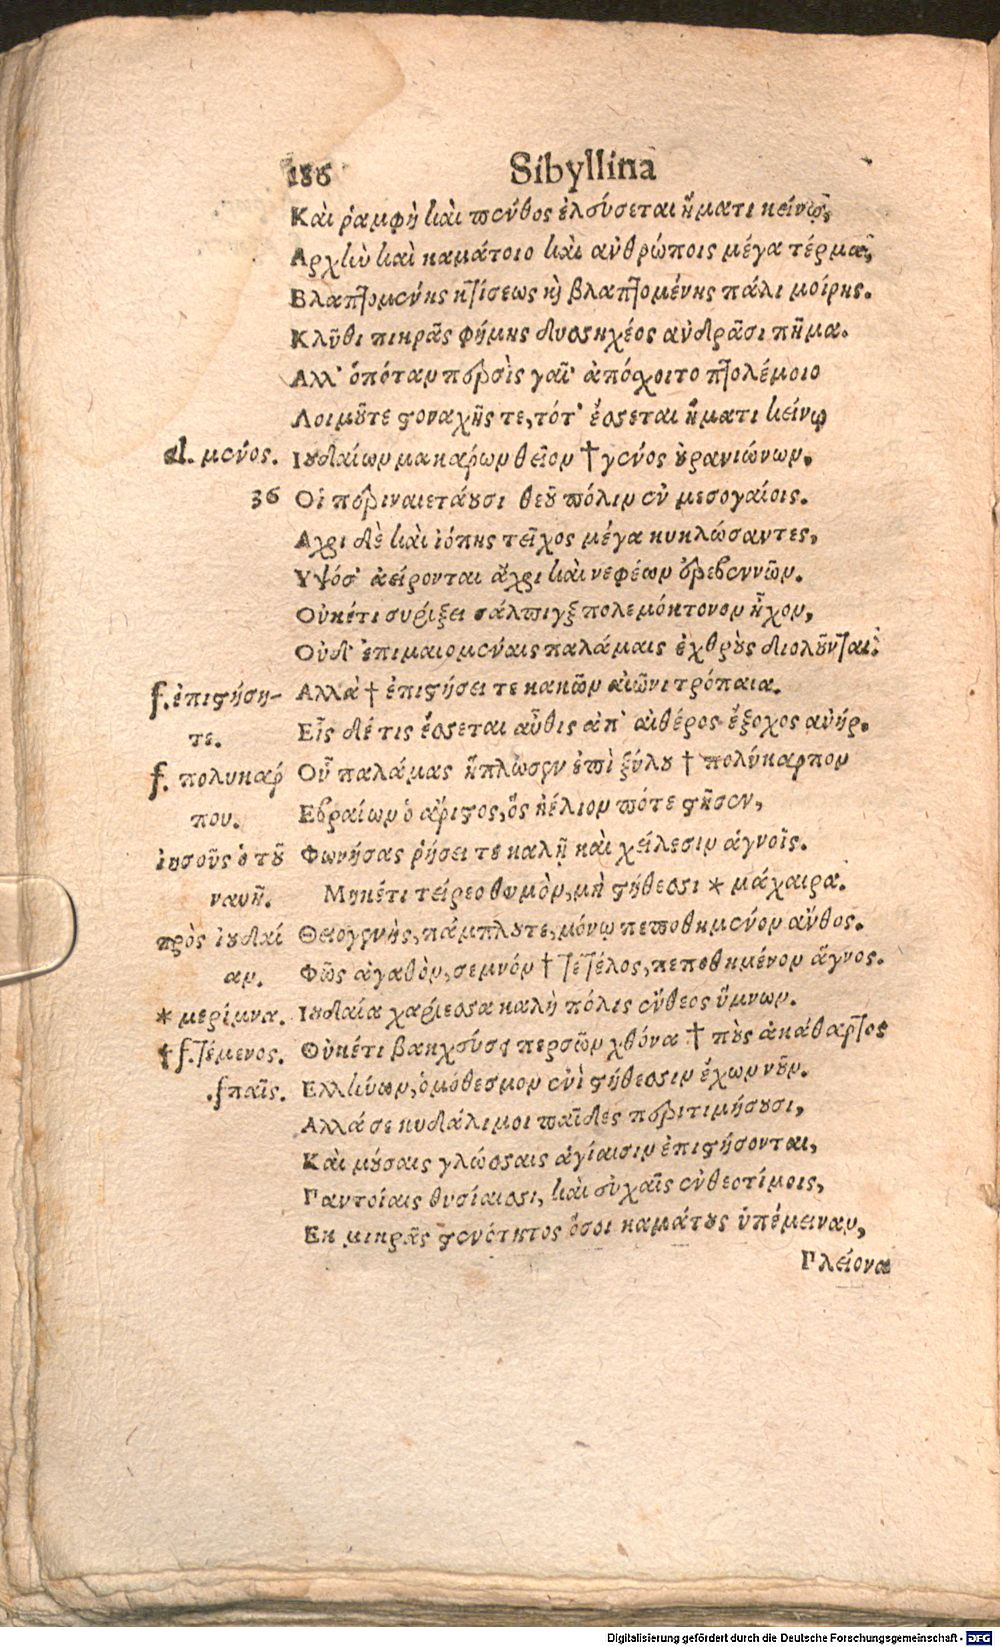 186 Sibyllina
Καὶ ῥαμφὴ καὶ πένθος ἐλεύσεται ἤματι κείνῳ,
Αρχὴν καὶ καμάτοιο καὶ ἀνθρώποις μέγα τέρμα,
Βλαπτομένης κτίσεως καὶ βλαπτομένης πάλι μοίρης.
Κλῦθι πικρᾶς φήμης δυσηχέος ἀνδρᾶσι πῆμα.
Αλλ' ὁπόταν περσὶς γαῖ' ἀπόσχοιτο πτολέμοιο
Λοιμοῦτε στοναχῆς τε, τότ' ἔσσεται ἤματι κείνῳ
al. μένος. Ιουδαίων μακάρων θεῖον † γένος οὐρανιώνων,
36 Οἱ περιναιετάουσι θεοῦ πόλιν ἐν μεσογαίοις.
Αχρι δὲ καὶ ἰόπης τεῖχος μέγα κυκλώσαντες,
Υψόσ' ἀείρονται ἄχρι καὶ νεφέων ἐρεβεννῶν.
Οὐκέτι συρίξει σάλπιγξ πολεμόκτονον ἦχον,
Οὐδ' ἐπιμαιομέναις παλάμαις ἐχθροὺς διολοῦνται.
f. ἐπιστήση- Αλλὰ † ἐπιστήσει τε κακῶν αἰῶνι τρόπαια.
τε. Εἷς δέ τις ἔσσεται αὖθις ἀπ' αἰθέρος ἔξοχος ἀνήρ,
f. πολυκάρ Οὗ παλάμας ἥπλωσεν ἐπὶ ξύλου † πολύκαρπον
που. Εβραίων ὁ ἄριστος, ὅς ἠέλιον πότε στῆσεν,
ἰησοῦς ὁ τοῦ Φωνήσας ῥήσει τε καλῇ καὶ χείλεσιν ἁγνοῖς.
ναυῆ. Μηκέτι τείρεο θυμὸν, μὴ στήθεσσι * μάχαιρα.
πρὸς ἰουδαί Θειογενὴς, πάμπλουτε, μόνῳ πεποθημένον ἄνθος.
αν. Φῶς ἀγαθὸν, σεμνόν † τε τέλος, πεποθημένον ἅγνος.
* μερίμνα. Ιουδαία χαρίεσσα καλὴ πόλις ἔνθεος ὕμνων.
† f. τέμενος. Οὐκέτι βακχεύσει περσῶν χθόνα † ποὺς ἀκάθαρτος
. f παῖς. Ελλήνων, ὁμόθεσμον ἐνὶ στήθεσσιν ἔχων νοῦν.
Αλλά σε κυδάλιμοι παῖδες περιτιμήσουσι,
Καὶ μούσαις γλώσσαις ἁγίαισιν ἐπιστήσονται,
Παντοίαις θυσίαισι, καὶ εὐχαῖς ἐνθεοτίμοις,
Εκ μικρᾶς στενότητος ὅσοι καμάτους ὑπέμειναν,
Πλείονα
Digitalisierung gefördert durch die Deutsche Forschungsgemeinschaft - DFG